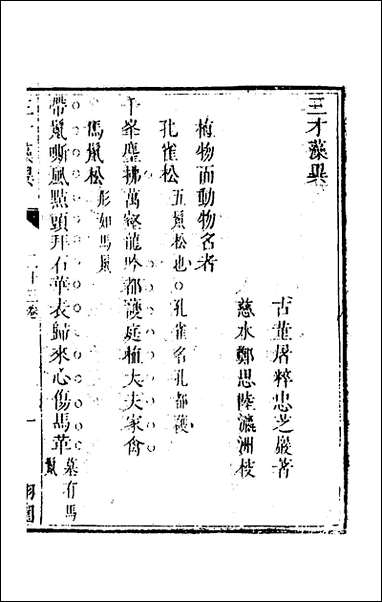 三才藻異
古堇屠粹忠芝巖著
慈水鄭思陸瀛洲校
植物而動物名者
孔雀松 五鬛松也○孔雀名孔都護
十峯塵拂萬壑龍吟都護庭植大夫家禽
馬鬛松 形如馬鬛
帶鬛嘶風點頭拜石華表歸來心傷馬革 墓有馬鬛
三才藻異 二十三卷 一